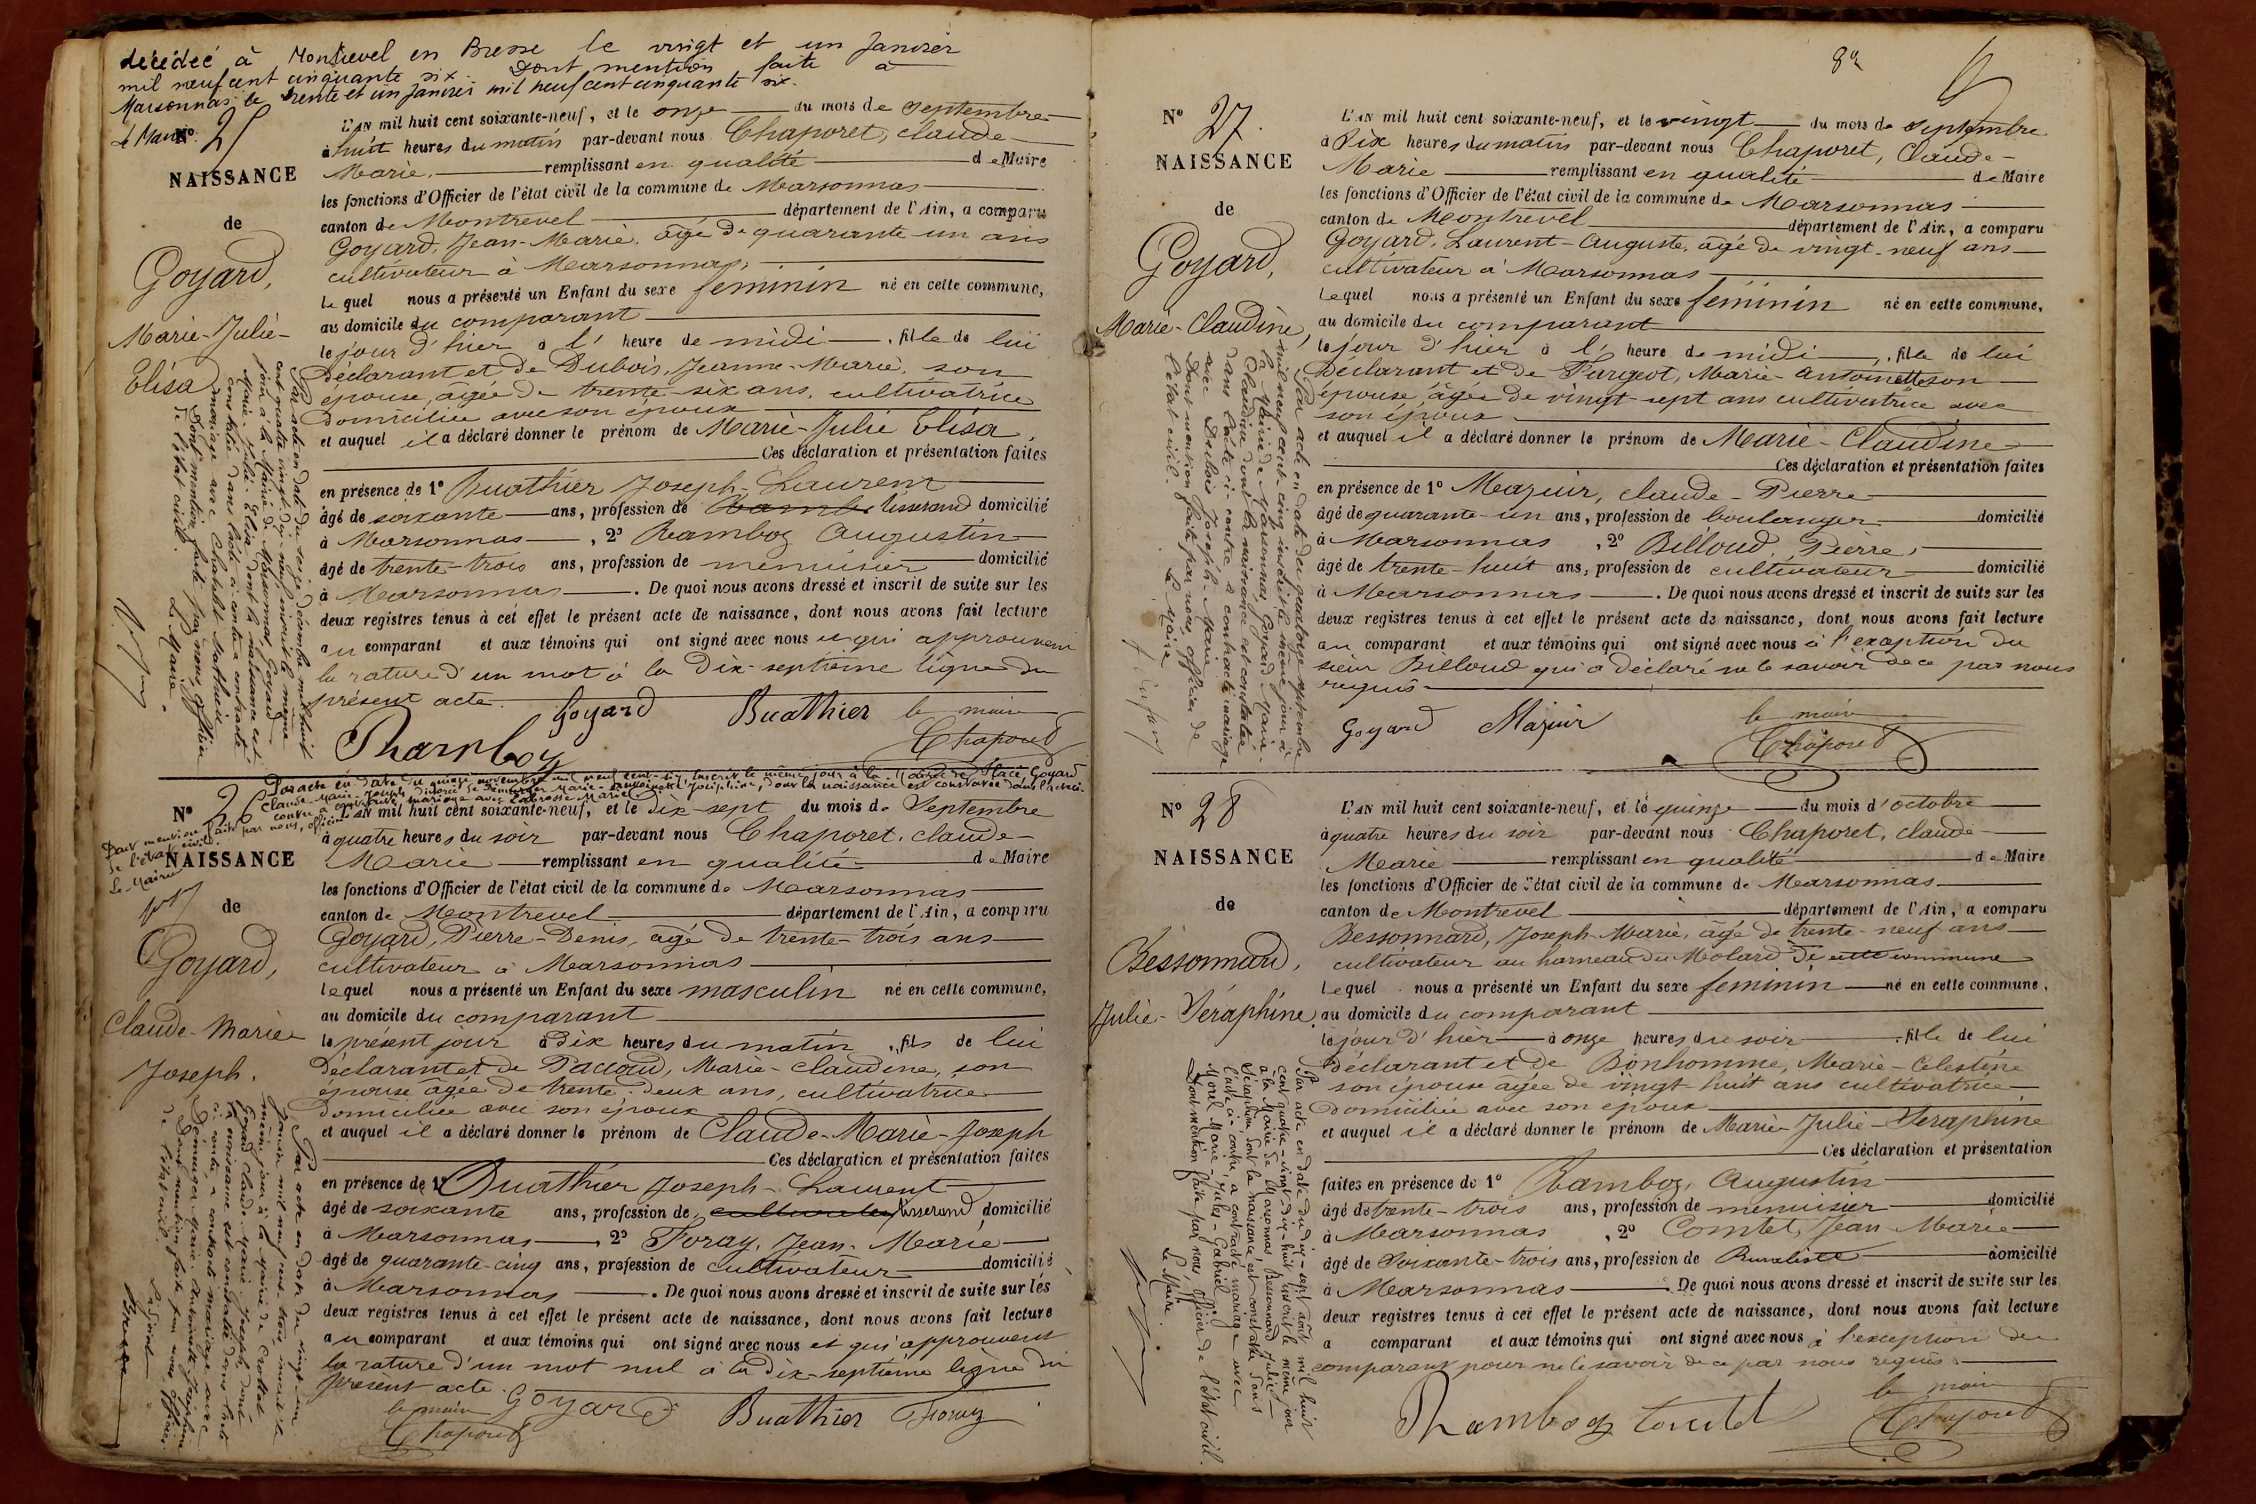 décédée à Montrevel en Bresse le vingt et un Janvier
mil neuf cent cinquante six. Dont mention faite à
Marsonnas le trente et un janvier mil neuf cent cinquante six.
Le Maire.
N° 25
NAISSANCE
de
Goyard,
Marie-Julie-
Elisa
L'AN mil huit cent soixante-neuf, et le onze du mois de Septembre
à huit heures du matin par-devant nous Chaporet, Claude-
Marie, remplissant en qualité de Maire
les fonctions d'Officier de l'état civil de la commune de Marsonnas
canton de Montrevel département de l'Ain, a comparu
Goyard, Jean-Marie, âgé de quarante un ans
cultivateur à Marsonnas,
lequel nous a présenté un Enfant du sexe féminin né en cette commune,
au domicile du comparant
le jour d'hier à l' heure de midi, fille de lui
déclarant et de Dubois, Jeanne-Marie, son
épouse, âgée de trente-six ans, cultivatrice
domiciliée avec son époux
et auquel il a déclaré donner le prénom de Marie-Julie Elisa
Ces déclaration et présentation faites
en présence de 1° Buathier Joseph-Laurent
âgé de soixante ans, profession de tisserand domicilié
à Marsonnas, 2° Ramboz Augustin
âgé de trente-trois ans, profession de menuisier domicilié
à Marsonnas. De quoi nous avons dressé et inscrit de suite sur les
deux registres tenus à cet effet le présent acte de naissance, dont nous avons fait lecture
au comparant et aux témoins qui ont signé avec nous et qui approuvent
la rature d'un mot à la dix-septième ligne du
présent acte.
Goyard Buathier le maire
Rhamboz Chaporet
Par acte en date du seize décembre mil huit
cent quatre vingt dix neuf inscrit le même
jour à la Mairie de Marsonnas, Goyard
Marie-Julie-Elisa dont la naissance est
constatée dans l'acte ci-contre a contracté
mariage avec Chatelet Mathieu
Dont mention faite par nous, officier
de l'état civil.
Le Maire
Par acte en date du
Claude-Marie-Joseph, divorcé de Démurger Marie-Antoinette Joséphine, dont la naissance est constatée dans l'acte ci-
contre, a contracté mariage avec Labrosse Marie
Dont mention faite par nous, officier
de l'état civil.
Le Maire
N° 26
NAISSANCE
de
Goyard,
Claude-Marie
Joseph.
L'AN mil huit cent soixante-neuf, et le dix-sept du mois de Septembre
à quatre heures du soir par-devant nous Chaporet, Claude-
Marie remplissant en qualité de Maire
les fonctions d'Officier de l'état civil de la commune de Marsonnas
canton de Montrevel département de l'Ain, a comparu
Goyard, Pierre-Denis, âgé de trente-trois ans
cultivateur à Marsonnas
lequel nous a présenté un Enfant du sexe masculin né en cette commune,
au domicile du comparant
le présent jour à dix heures du matin, fils de lui
déclarant et de Pacoud, Marie-Claudine, son
épouse âgée de trente-deux ans, cultivatrice
domiciliée avec son époux
et auquel il a déclaré donner le prénom de Claude-Marie-Joseph
Ces déclaration et présentation faites
en présence de 1° Buathier Joseph-Laurent
âgé de soixante ans, profession de cultivateur tisserand domicilié
à Marsonnas, 2° Foray, Jean-Marie
âgé de quarante-cinq ans, profession de cultivateur domicilié
à Marsonnas. De quoi nous avons dressé et inscrit de suite sur les
deux registres tenus à cet effet le présent acte de naissance, dont nous avons fait lecture
au comparant et aux témoins qui ont signé avec nous et qui approuvent
la rature d'un mot nul à la dix-septième ligne du
présent acte.
le maire Goyard Buathier Foray
Chaporet
Par acte en date du vingt-un
janvier mil neuf cent trois inscrit le
même jour à la mairie de Crottet
Goyard Claude-Marie-Joseph, dont
la naissance est constatée dans l'acte
ci-contre, a contracté mariage avec
Démurger Marie-Antoinette Joséphine
Dont mention faite par nous, officier
de l'état civil.
L'adjoint
8
N° 27.
NAISSANCE
de
Goyard,
Marie-Claudine,
L'AN mil huit cent soixante-neuf, et le vingt du mois de Septembre
à dix heures du matin par-devant nous Chaporet, Claude-
Marie remplissant en qualité de Maire
les fonctions d'Officier de l'état civil de la commune de Marsonnas
canton de Montrevel département de l'Ain, a comparu
Goyard, Laurent-Auguste, âgé de vingt-neuf ans
cultivateur à Marsonnas
lequel nous a présenté un Enfant du sexe féminin né en cette commune,
au domicile du comparant
le jour d'hier à l' heure de midi, fille de lui
déclarant et de Furgeot, Marie-Antoinette son
épouse, âgée de vingt-sept ans cultivatrice avec
son époux
et auquel il a déclaré donner le prénom de Marie-Claudine
Ces déclaration et présentation faites
en présence de 1° Mazuir, Claude-Pierre
âgé de quarante-un ans, profession de boulanger domicilié
à Marsonnas, 2° Billoud, Pierre,
âgé de trente-huit ans, profession de cultivateur domicilié
à Marsonnas. De quoi nous avons dressé et inscrit de suite sur les
deux registres tenus à cet effet le présent acte de naissance, dont nous avons fait lecture
au comparant et aux témoins qui ont signé avec nous à l'exception du
sieur Billoud qui a déclaré ne le savoir de ce par nous
requis
Goyard Mazuir le maire
Chaporet
Par acte en date du quatorze septembre
mil neuf cent cinq inscrit le même jour à
la Mairie de Marsonnas, Goyard Marie-
Claudine dont la naissance est constatée
dans l'acte ci-contre a contracté mariage
avec Dubois Joseph-Marie
Dont mention faite par nous, officier de
l'état civil.
Le Maire
N° 28
NAISSANCE
de
Bessonnard,
Julie-Séraphine
L'AN mil huit cent soixante-neuf, et le quinze du mois d'octobre
à quatre heures du soir par-devant nous Chaporet, Claude
Marie remplissant en qualité de Maire
les fonctions d'Officier de l'état civil de la commune de Marsonnas
canton de Montrevel département de l'Ain, a comparu
Bessonnard, Joseph-Marie, âgé de trente-neuf ans
cultivateur au hameau du Molard de cette commune
lequel nous a présenté un Enfant du sexe féminin né en cette commune,
au domicile du comparant
le jour d'hier à onze heures du soir, fille de lui
déclarant et de Bonhomme, Marie-Célestine
son épouse âgée de vingt-huit ans cultivatrice
domiciliée avec son époux
et auquel il a déclaré donner le prénom de Marie-Julie-Séraphine
Ces déclaration et présentation
faites en présence de 1° Ramboz, Augustin
âgé de trente-trois ans, profession de menuisier domicilié
à Marsonnas, 2° Comtet, Jean-Marie
âgé de soixante-trois ans, profession de Buraliste domicilié
à Marsonnas. De quoi nous avons dressé et inscrit de suite sur les
deux registres tenus à cet effet le présent acte de naissance, dont nous avons fait lecture
a comparant et aux témoins qui ont signé avec nous à l'exception du
comparant pour ne le savoir de ce par nous requis.
Rhamboz Comtet le maire
Chaporet
Par acte en date du dix-sept août mil huit
cent quatre-vingt-dix-huit inscrit le même jour
à la Mairie de Marsonnas, Bessonnard Julie-
Séraphine dont la naissance est constatée dans
l'acte ci-contre a contracté mariage avec
Morel Marie-Jules-Gabriel
Dont mention faite par nous officier de l'état civil.
Le Maire.